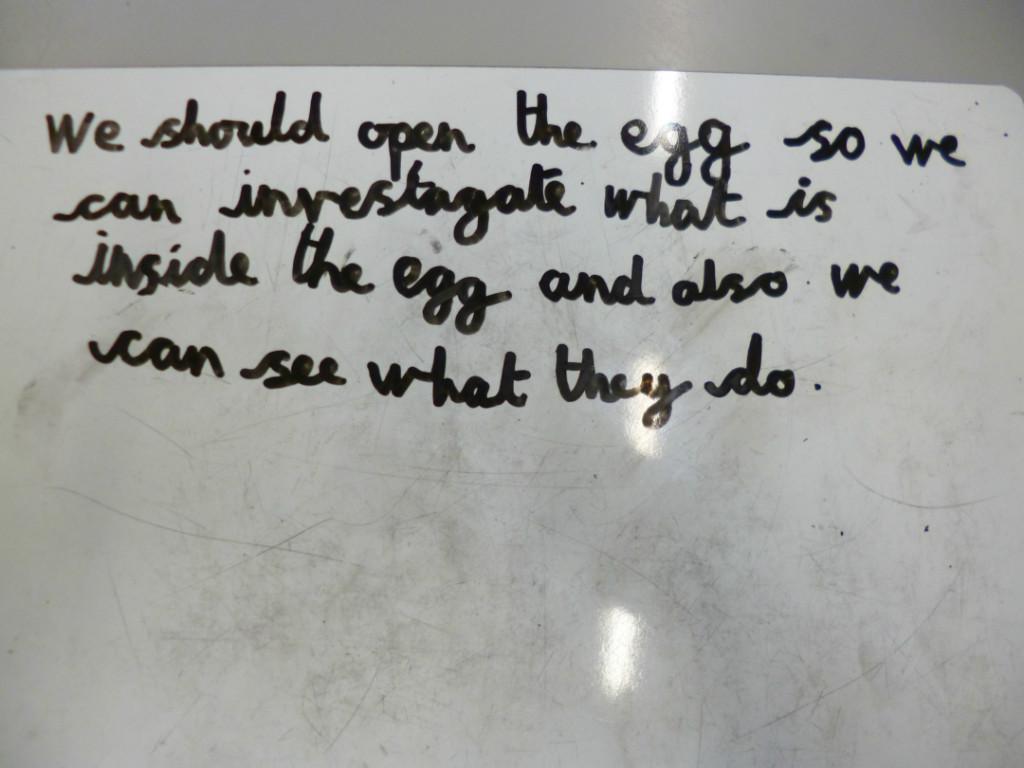 We should open the egg so we
can investagate what is
inside the egg and also we
can see what they do.